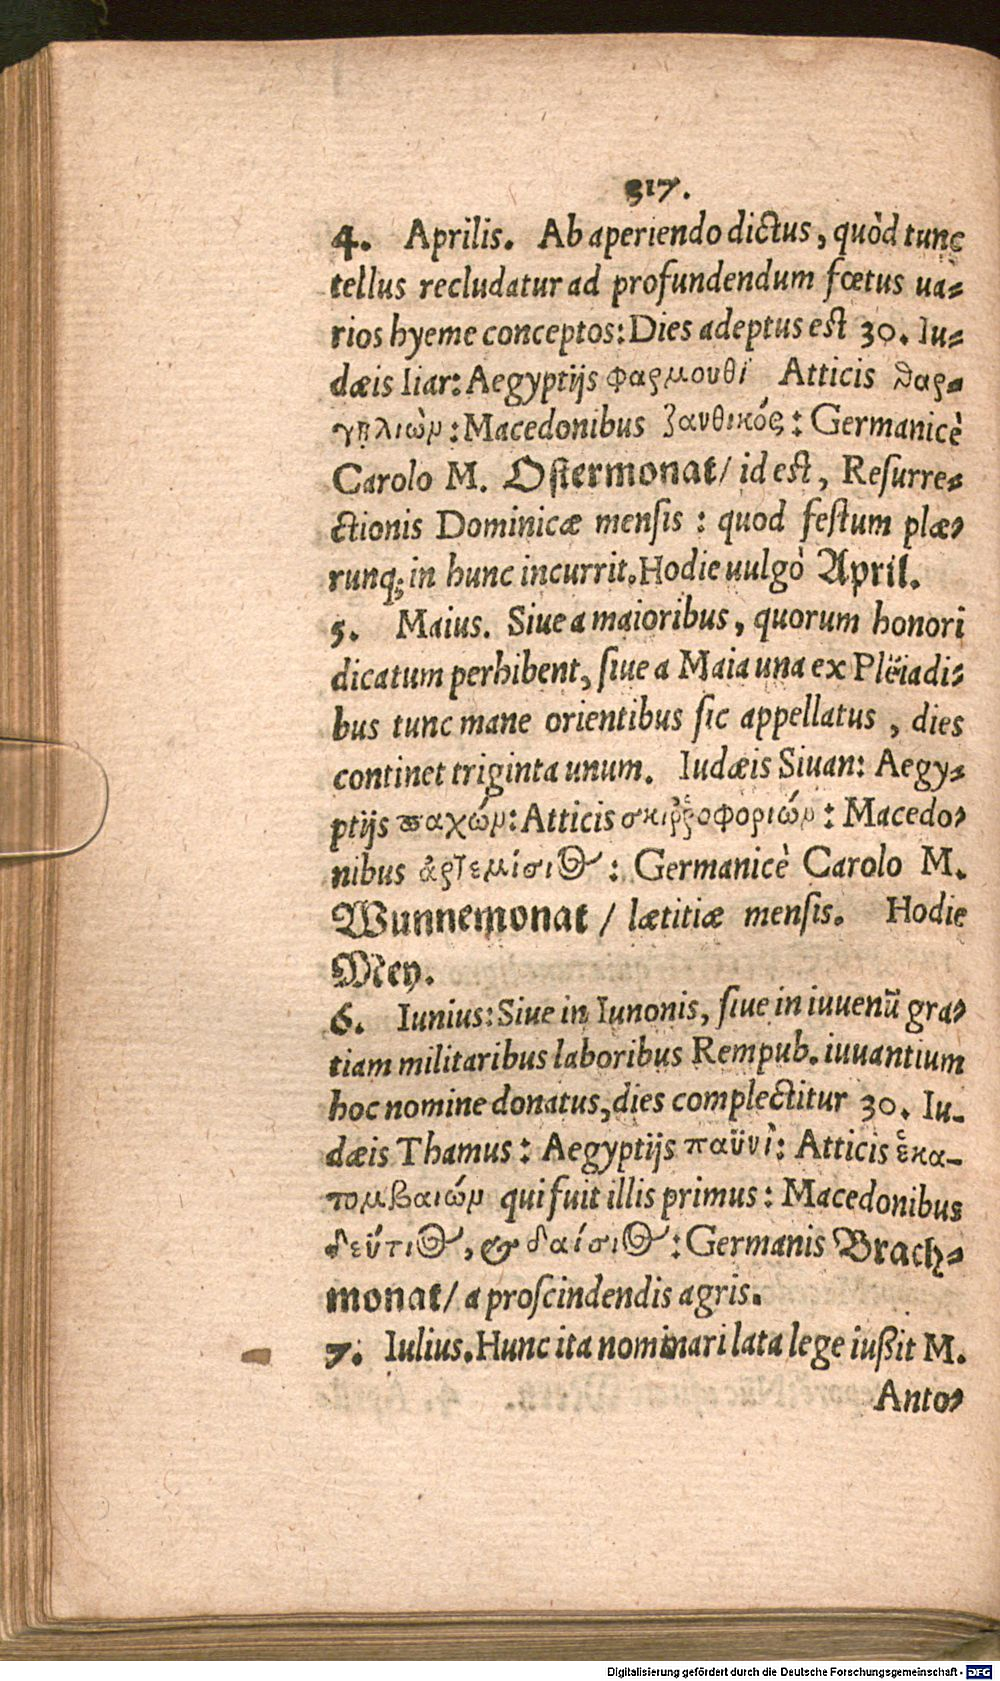 317.
4. Aprilis. Ab aperiendo dictus, quòd tunc
tellus recludatur ad profundendum fœtus ua-
rios hyeme conceptos: Dies adeptus est 30. Iu-
dæis Iiar: Aegyptijs φαρμουθὶ Atticis θαρ-
γηλιὼν: Macedonibus ξανθικός: Germanicè
Carolo M. Ostermonat/ id est, Resurre-
ctionis Dominicæ mensis: quod festum plæ-
runq; in hunc incurrit. Hodie uulgò April.
5. Maius. Siue a maioribus, quorum honori
dicatum perhibent, siue a Maia una ex Plëiadi-
bus tunc mane orientibus sic appellatus, dies
continet triginta unum. Iudæis Siuan: Aegy-
ptijs παχών: Atticis σκιῤῥοφοριών: Macedo-
nibus ἀρτεμίσιος: Germanicè Carolo M.
Wunnemonat/ lætitiæ mensis. Hodie
Mey.
6. Iunius: Siue in Iunonis, siue in iuuenũ gra-
tiam militaribus laboribus Rempub. iuuantium
hoc nomine donatus, dies complectitur 30. Iu-
dæis Thamus: Aegyptijs παϋνὶ: Atticis ἑκα-
τομβαιών qui fuit illis primus: Macedonibus
δεύτιος, & δαίσιος: Germanis Brach-
monat/ a proscindendis agris.
7. Iulius. Hunc ita nominari lata lege iußit M.
Anto-
Digitalisierung gefördert durch die Deutsche Forschungsgemeinschaft - DFG